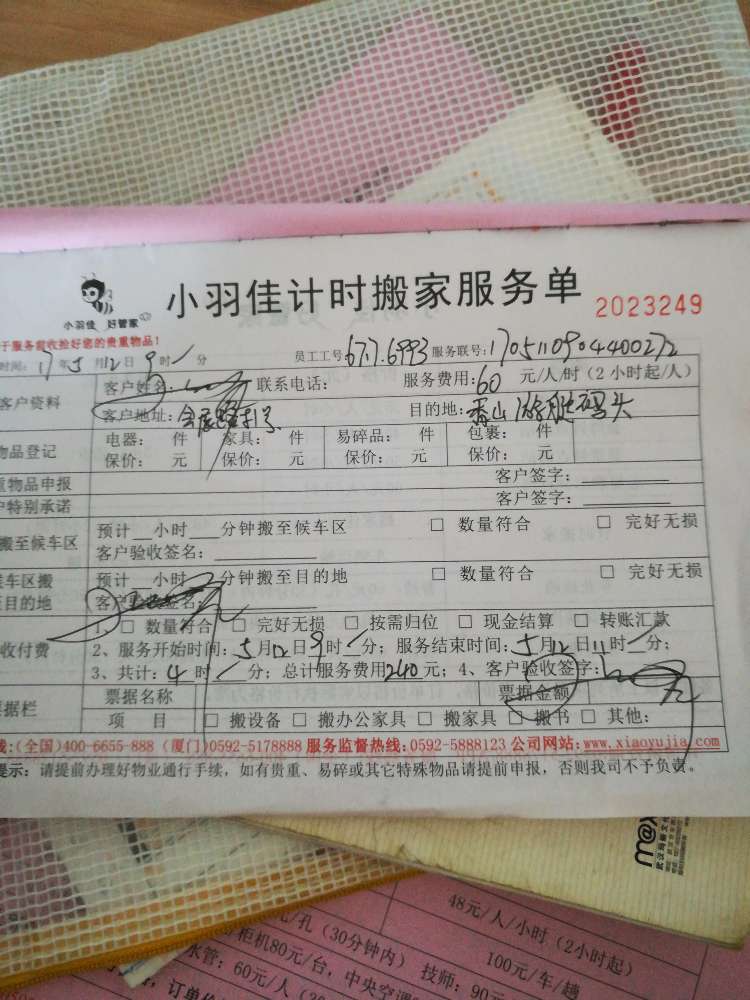 小羽佳 好管家
小羽佳计时搬家服务单
2023249
于服务前收捡好您的贵重物品!
时间: 17年5月12日9时/分 员工工号 677.6993 服务联号: 1705110904400272
客户资料 客户姓名: 联系电话: 服务费用: 60 元/人/时 (2小时起/人)
客户地址: 目的地: 香山游艇码头
物品登记 电器: 件 家具: 件 易碎品: 件 包裹: 件
保价: 元 保价: 元 保价: 元 保价: 元
重物品申报 客户签字:
户特别承诺 客户签字:
搬至候车区 预计__小时__分钟搬至候车区 □ 数量符合 □ 完好无损
客户验收签名:
候车区搬 预计__小时__分钟搬至目的地 □ 数量符合 □ 完好无损
至目的地 客户验收签名:
收付费 1、□ 数量符合 □ 完好无损 □ 按需归位 □ 现金结算 □ 转账汇款
2、服务开始时间: 5月12日9时/分; 服务结束时间: 5月12日11时/分;
3、共计: 4时/分; 总计服务费用240元; 4、客户验收签字:
票据栏 票据名称 票据金额
项 目 □ 搬设备 □ 搬办公家具 □ 搬家具 □ 搬书 □ 其他:
线:(全国)400-6655-888 (厦门)0592-5178888 服务监督热线:0592-5888123 公司网站:www.xiaoyujia.com
提示: 请提前办理好物业通行手续, 如有贵重、易碎或其它特殊物品请提前申报, 否则我司不予负责。
m@x
48元/人/小时 (2小时起)
元/孔 (30分钟内) 100元/车/趟
柜机80元/台, 中央空调 技师: 90元
水管: 60元/人